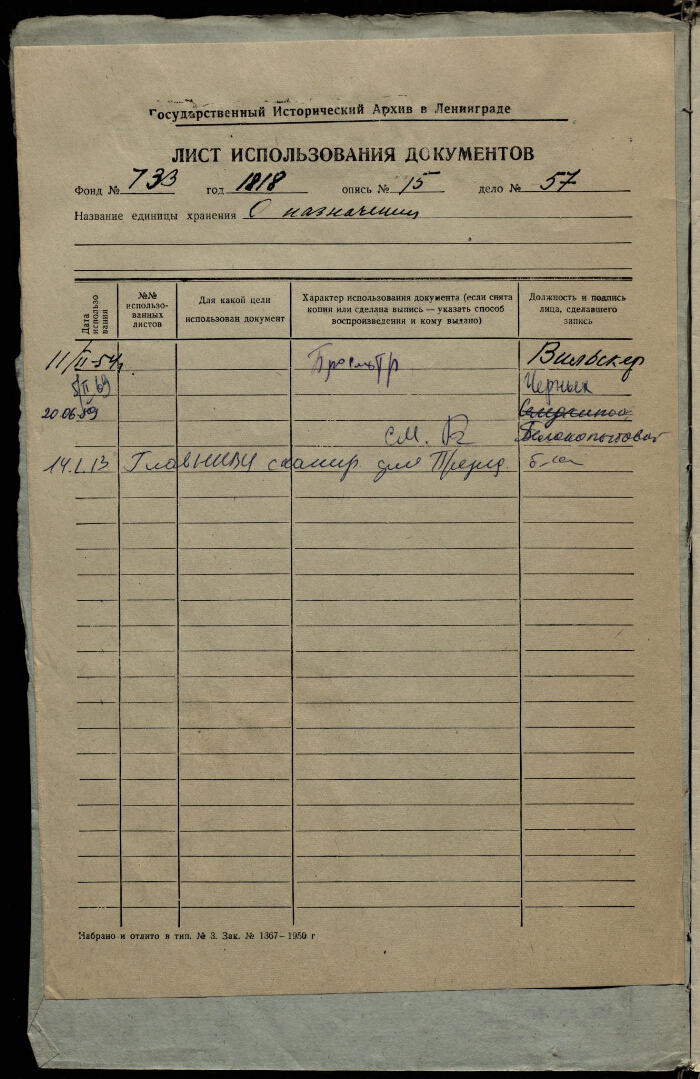 Государственный Исторический Архив в Ленинграде
ЛИСТ ИСПОЛЬЗОВАНИЯ ДОКУМЕНТОВ
Фонд № 733 год 1818 опись № 15 дело № 57
Название единицы хранения О назначении
Дата использования
№№ использованных листов
Для какой цели использован документ
Характер использования документа (если снята копия или сделана выпись — указать способ воспроизведения и кому выдано)
Должность и подпись лица, сделавшего запись
11/II-54г. Просмотр Вильскер
5/II 69 Черных
20.06.89
см. Белокопытовой
14.I.13 сканир. для
Набрано и отлито в тип. № 3. Зак. № 1367—1950 г